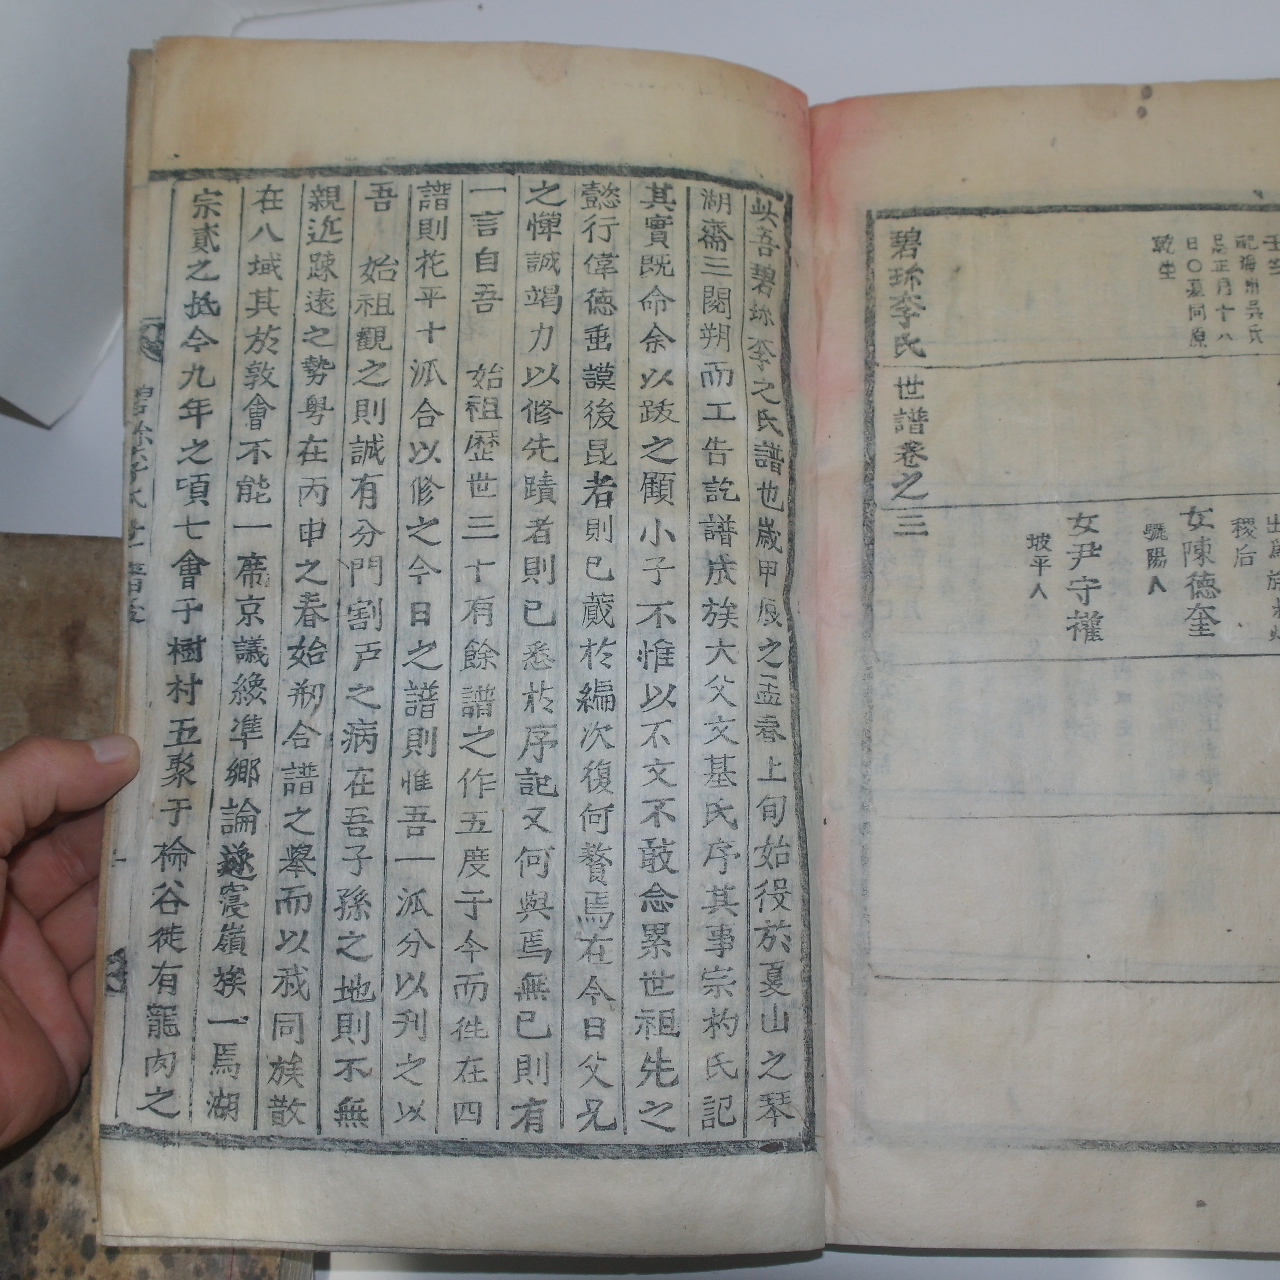 壬寅
配海州吳氏
忌正月十八
日○墓同原
乾生
稷后
女陳德奎
驪陽人
女尹守權
坡平人
碧珎李氏世譜卷之三
此吾碧珎李之氏譜也歲甲辰之孟春上旬始役於夏山之琴
湖齋三閱朔而工告訖譜成族大父文基氏序其事宗杓氏記
其實既命余以跋之顧小子不惟以不文不敢念累世祖先之
懿行偉德垂謨後昆者則已蕆於編次復何贅焉在今日父兄
之憚誠竭力以修先蹟者則已悉於序記又何與焉無已則有
一言自吾　始祖歷世三十有餘譜之作五度于今而徃在四
譜則花平十派合以修之今日之譜則惟吾一派分以刋之以
吾　始祖觀之則誠有分門割戶之病在吾子孫之地則不無
親近踈遠之勢粤在丙申之春始刱合譜之擧而以我同族散
在八域其於敦會不能一席京議纔準鄉論遂寢嶺族一焉湖
宗貳之抵今九年之頃七會于樹村五聚于棆谷徒有龍肉之